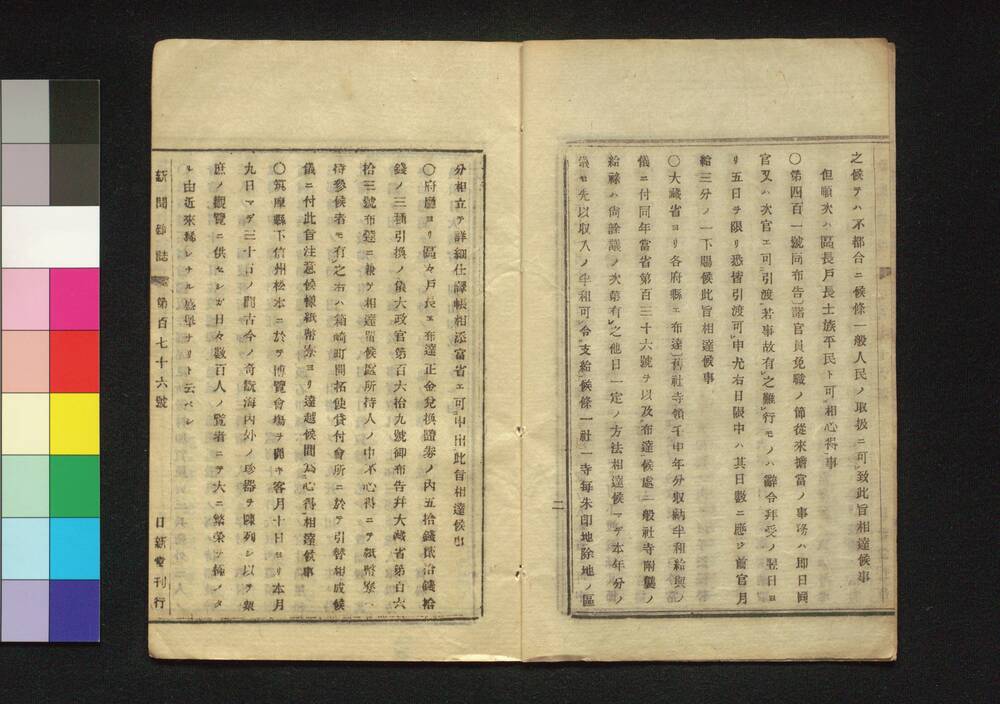 之候テハ不都合ニ候條一般人民ノ取扱ニ可致此旨相達候事
但順次ハ區長戸長士族平民ト可相心得事
〇第四百一號同布告諸官員免職ノ節從來擔當ノ事務ハ即日同
官又ハ次官エ可引渡若事故有之難行モノハ辭令拜受ノ翌日ヨ
リ五日ヲ限リ悉皆引渡可申尤右日限中ハ其日數ニ應シ前官月
給三分ノ一下賜候此旨相達候事
〇大藏省ヨリ各府縣エ布達舊社寺領壬申年分収納半租給與ノ
儀ニ付同年當省第百三十六號ヲ以及布達候處一般社寺附襲ノ
給祿ハ尚詮議ノ次第有之他日一定ノ方法相達候マデ本年分ノ
儀モ先以収入ノ半租可令支給候條一社一寺毎朱印地除地ノ區
二
分相立テ詳細仕譯帳相添當省エ可申出此旨相達候事
〇府廳ヨリ區々戸長エ布達正金兌換證券ノ内五拾錢貳拾錢拾
錢ノ三種引換ノ儀大政官第百六拾九號御布告并大藏省第百六
拾三號布達ニ兼テ相達置候處所持人ノ中不心得ニテ紙幣寮ヘ
持參候者モ有之右ハ箱崎町開拓使貸付會所ニ於テ引替相成候
儀ニ付此旨注意候樣紙幣寮ヨリ達越候間爲心得相達候事
〇筑摩縣下信州松本ニ於テ博覽會塲ヲ開キ客月十日ヨリ本月
九日マデ三十日ノ間古今ノ奇翫海内外ノ珍器ヲ陳列シ以テ衆
庶ノ觀覽ニ供セシガ日々數百人ノ覽者ニテ大ニ繁榮ヲ極ノタ
ル由近來稀レナル盛擧ナリト云ベシ
新聞雜誌 第百七十六號 日新堂刊行